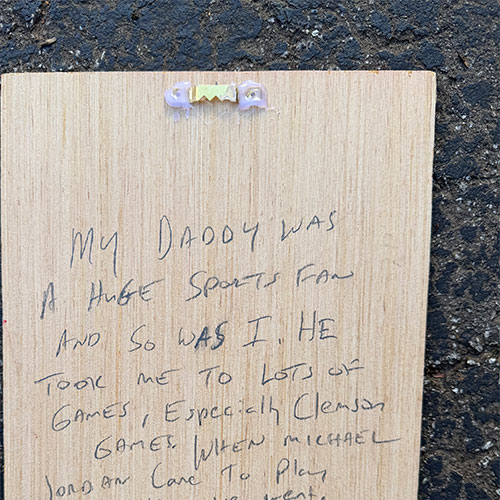 MY DADDY WAS
A HUGE SPORTS FAN
AND SO WAS I. HE
TOOK ME TO LOTS OF
GAMES, Especially Clemson
GAMES. WHEN MICHAEL
JORDAN CAME TO PLAY